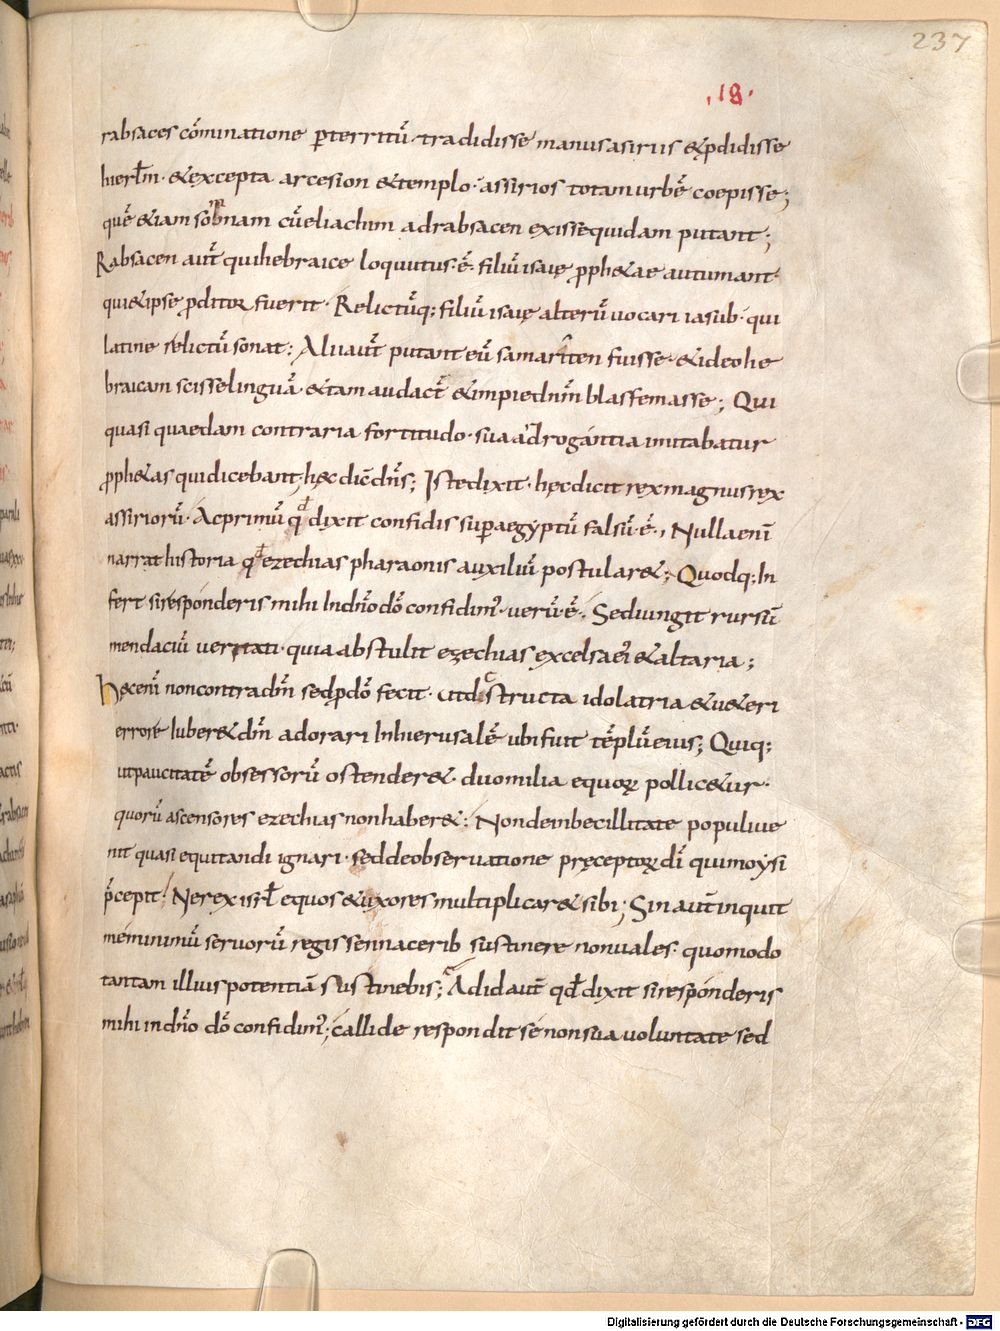 237
.18.
rabsaces cōminatione ꝑterritū· tradidisse manus asiriis & ꝑdidisse
hierłm· & excepta arce sion & templo· assirios totam urbē coepisse;
quē & iam sobnam cū eliachim ad rabsacen exisse quidam putant;
Rabsacen aut̄ qui hebraice loquutus· ē· filiū isaię ꝓph&ae autumant·
qui & ipse ꝓditor fuerit· Relictūq; filiū isaię alterū vocari iasub· qui
latine relictū sonat; Alii aut̄ putant eū samariten fuisse· & ideo he
braicam scisse linguā· & tam audact̄ & impie dn̄m blasfemasse; Qui
quasi quaedam contraria fortitudo· sua adrogantia imitabatur
ꝓph&as qui dicebant; hęc dic̄ dn̄s; Iste dixit· hęc dicit rex magnus rex
assiriorū· Ac primū qđ dixit confidis suꝑ aegyptū falsū· ē·, Nulla enī
narrat historia qđ ezechias pharaonis auxiliū postular&; Quodq; In
fert si responderis mihi In dn̄o dō confidim᾽· verū· ē·. Sed iungit rursū
mendaciū veritati· quia abstulit ezechias excelsa ei᾽ & altaria;
hęc enī non contra dn̄m sed ꝓ dō fecit· ut dcstructa idolatria & u&eri
errore Iuber& dn̄m adorari In hierusalē ubi fuit tēplū eius; Quiq;
ut paucitatē obsessorū ostender&· duo milia equoꝝ pollic&ur·
quorū ascensores ezechias non haber&; Non de inbecillitate populi ue
nit quasi equitandi ignari· sed de observatione pręceptoꝝ dī qui moysi
p̄cepit! Ne rex isrł equos & uxores multiplicar& sibi; Sin aut̄ inquit
me minimū servorū regis sennacerib sustinere non vales· quomodo
tantam illius potentiā sustinebis; Ad id aut̄ qđ dixit si responderis
mihi in dn̄o dō confidim᾽; callide respondit se non sua voluntate sed
Digitalisierung gefördert durch die Deutsche Forschungsgemeinschaft - DFG